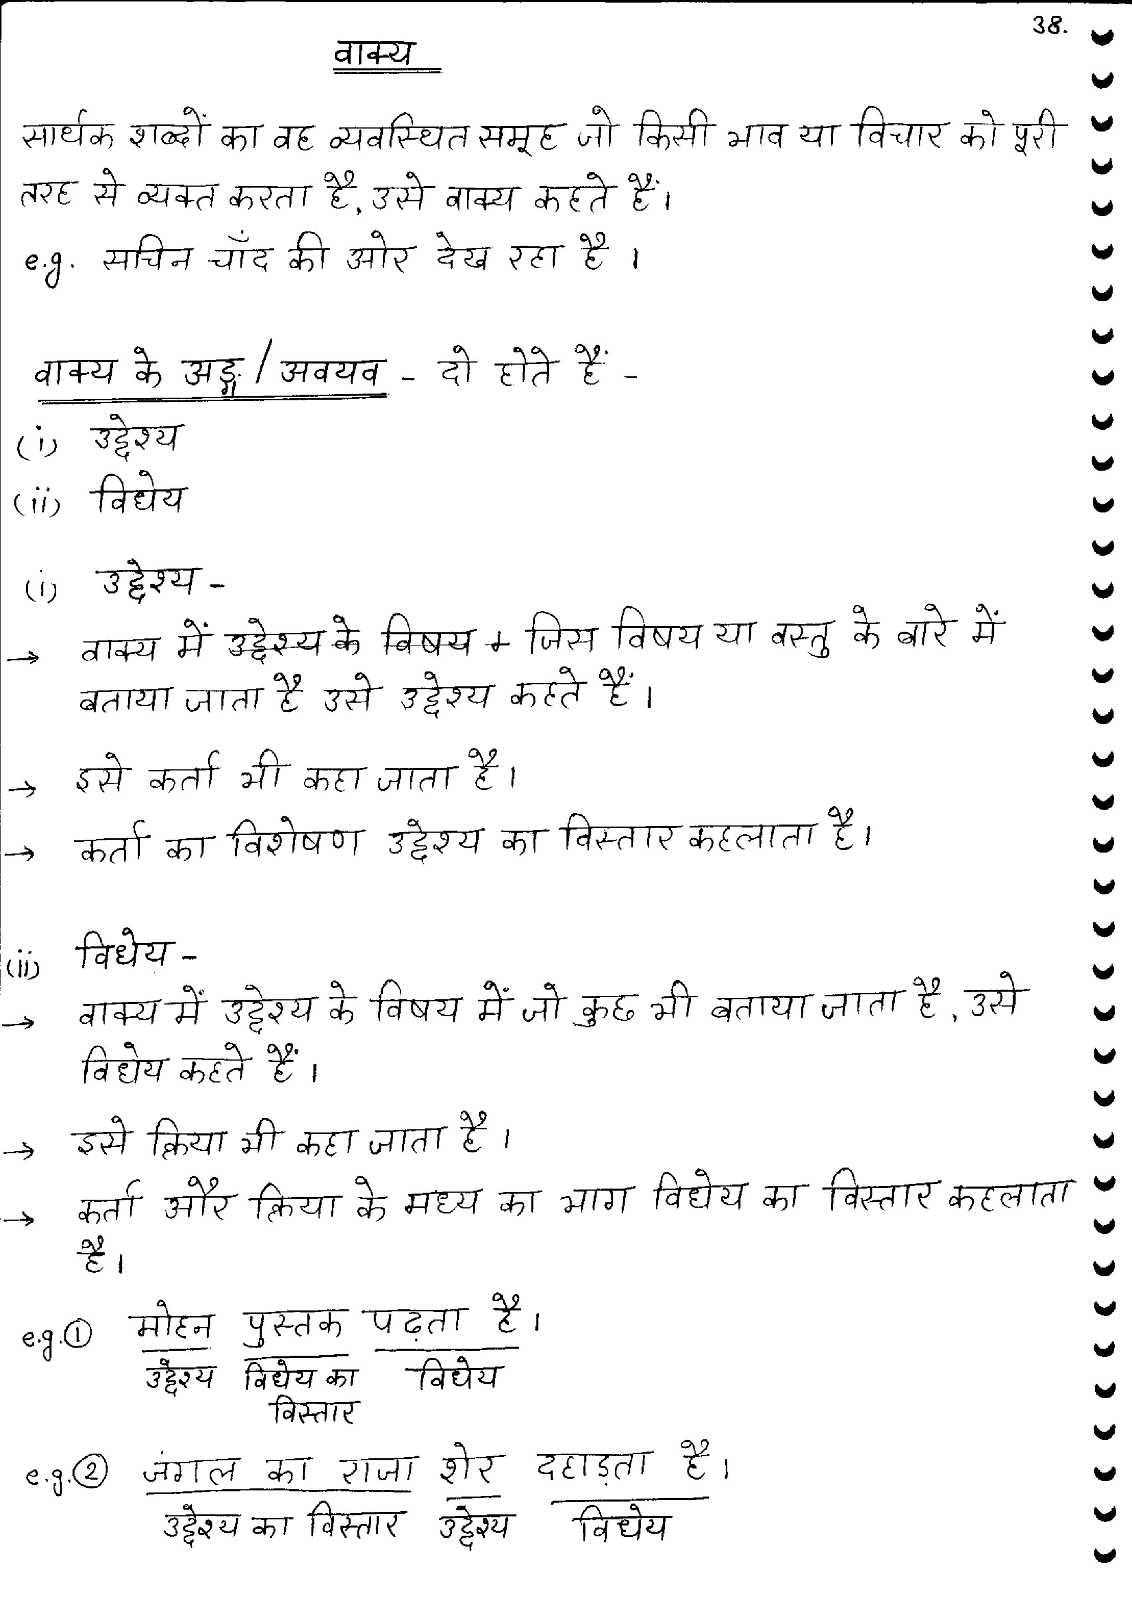 38.
वाक्य
सार्थक शब्दों का वह व्यवस्थित समूह जो किसी भाव या विचार को पूरी
तरह से व्यक्त करता है, उसे वाक्य कहते हैं।
e.g. सचिन चाँद की ओर देख रहा है ।
वाक्य के अङ्ग / अवयव - दो होते हैं -
(i) उद्देश्य
(ii) विधेय
(i) उद्देश्य -
→ वाक्य में उद्देश्य के विषय + जिस विषय या वस्तु के बारे में
बताया जाता है उसे उद्देश्य कहते हैं।
→ इसे कर्ता भी कहा जाता है।
→ कर्ता का विशेषण उद्देश्य का विस्तार कहलाता है।
(ii) विधेय -
→ वाक्य में उद्देश्य के विषय में जो कुछ भी बताया जाता है, उसे
विधेय कहते हैं।
→ इसे क्रिया भी कहा जाता है ।
→ कर्ता और क्रिया के मध्य का भाग विधेय का विस्तार कहलाता
है।
e.g.① मोहन पुस्तक पढ़ता है।
उद्देश्य विधेय का विधेय
विस्तार
e.g.② जंगल का राजा शेर दहाड़ता है।
उद्देश्य का विस्तार उद्देश्य विधेय